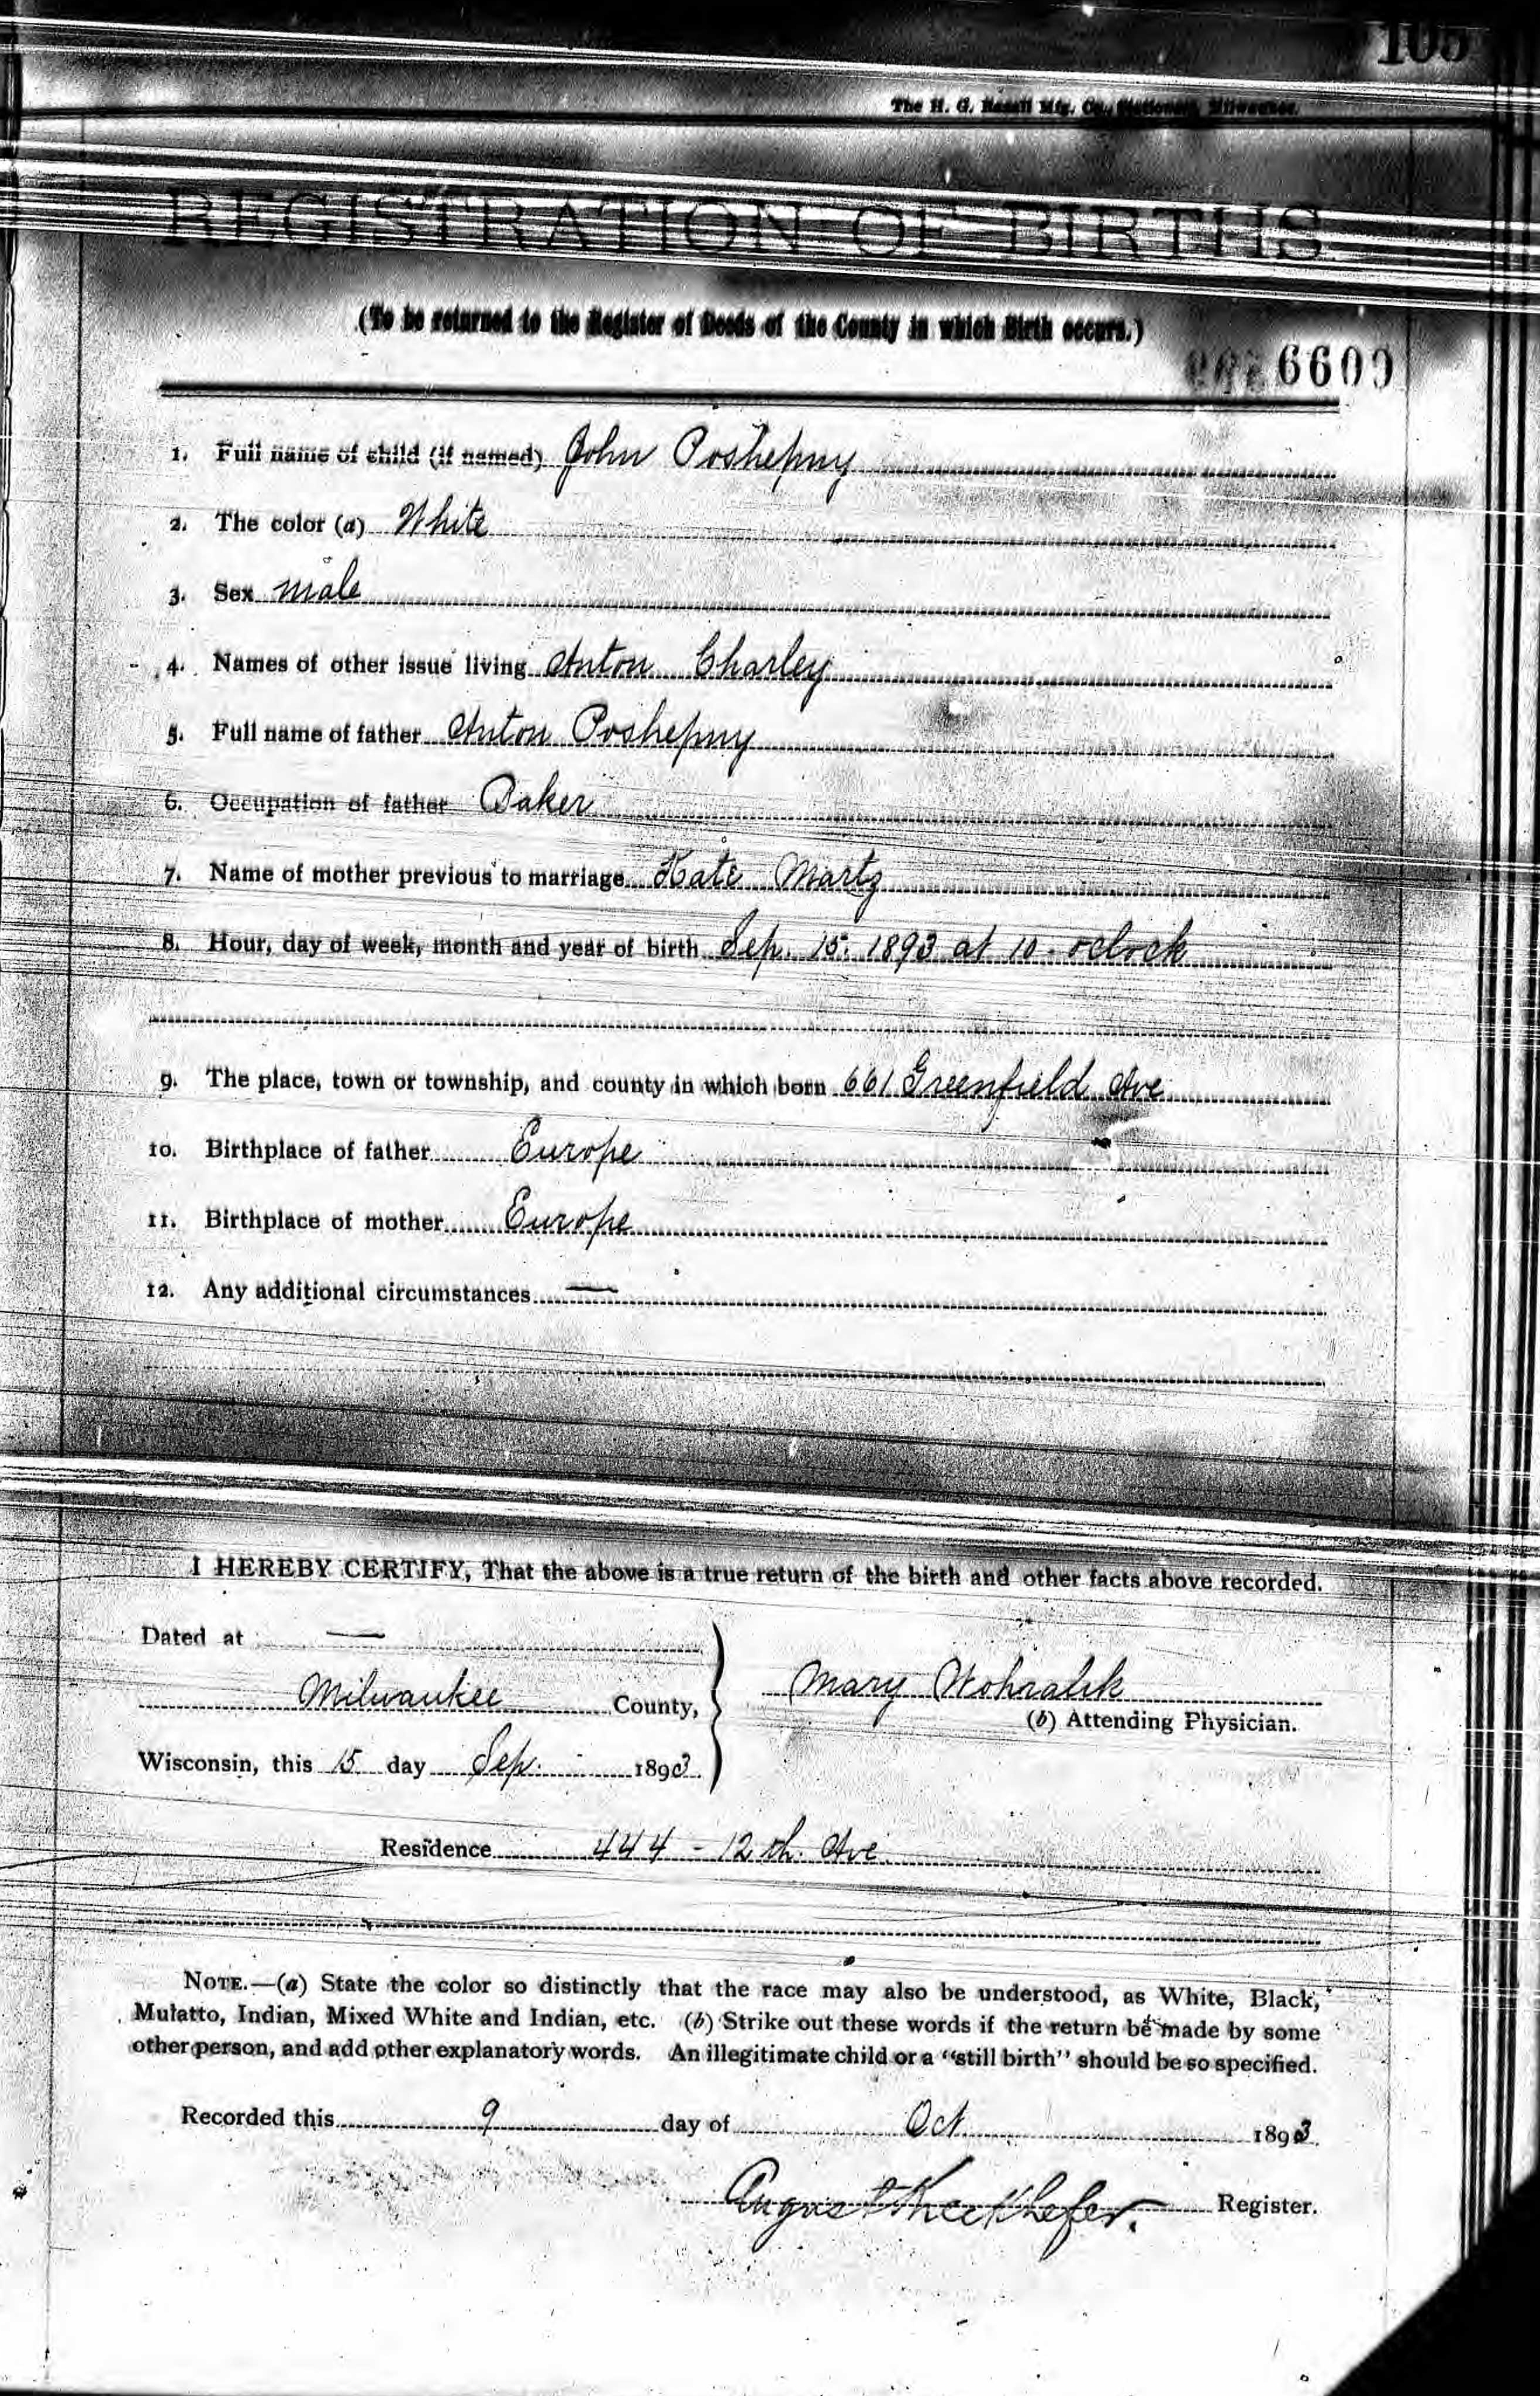 105
The H. G. Razall Mfg. Co., Stationers, Milwaukee.
REGISTRATION OF BIRTHS.
(To be returned to the Register of Deeds of the County in which Birth occurs.)
6609
1. Full name of child (if named) John Poshepny
2. The color (a) White
3. Sex male
4. Names of other issue living Anton Charley
5. Full name of father Anton Poshepny
6. Occupation of father Baker
7. Name of mother previous to marriage Kate Martz
8. Hour, day of week, month and year of birth Sep. 15. 1893 at 10 - oclock
9. The place, town or township, and county in which born 661 Greenfield Ave
10. Birthplace of father Europe
11. Birthplace of mother Europe
12. Any additional circumstances —
I HEREBY CERTIFY, That the above is a true return of the birth and other facts above recorded.
Dated at —
Milwaukee County,
Mary Wohralik
(b) Attending Physician.
Wisconsin, this 15 day Sep. 1893.
Residence 444 - 12 th. Ave.
NOTE.—(a) State the color so distinctly that the race may also be understood, as White, Black,
Mulatto, Indian, Mixed White and Indian, etc. (b) Strike out these words if the return be made by some
other person, and add other explanatory words. An illegitimate child or a "still birth" should be so specified.
Recorded this 9 day of Oct. 1893.
August Kieckhefer. Register.